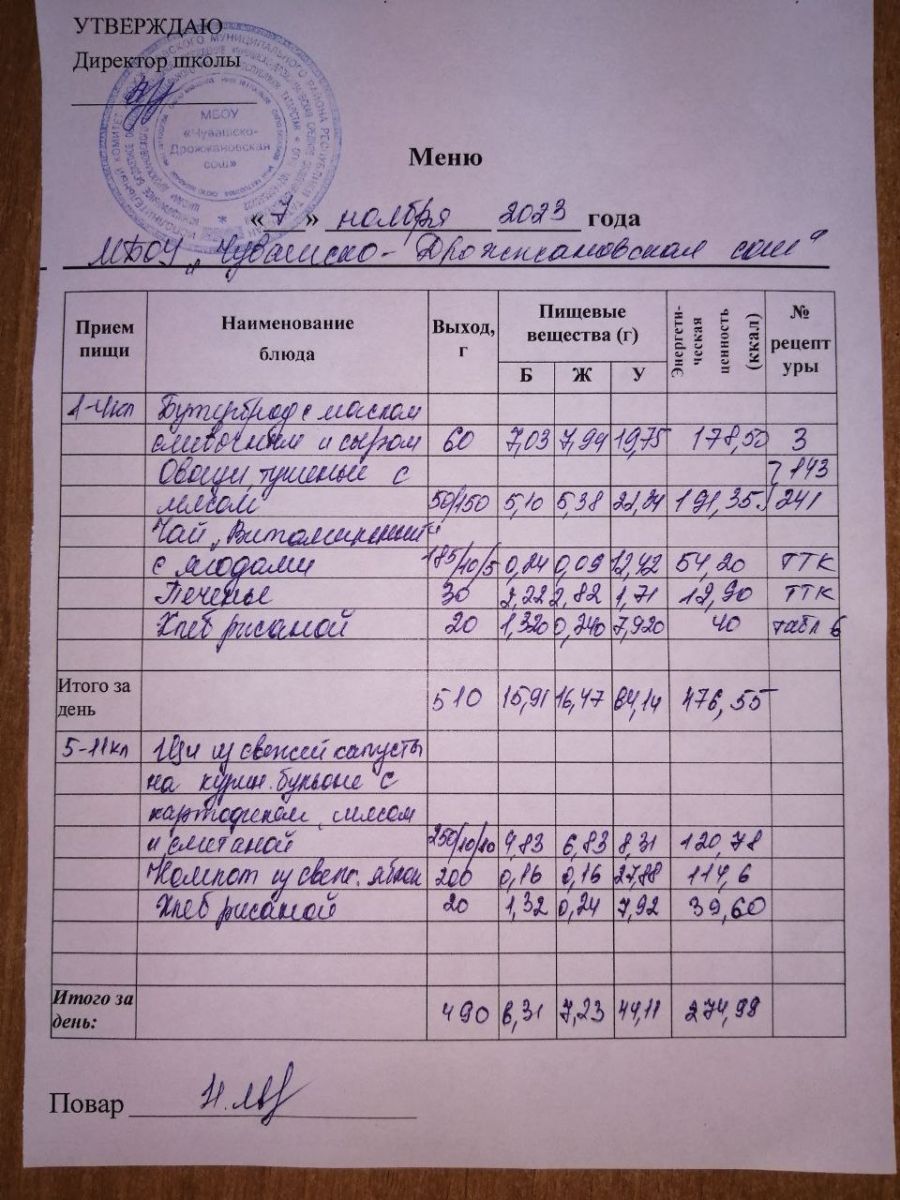 УТВЕРЖДАЮ
Директор школы
МБОУ
«Чувашско-
Дрожжановская
сош»
Меню
« 7 » ноября 2023 года
МБОУ „Чувашско-Дрожжановская сош“
Прием пищи Наименование блюда Выход, г Пищевые вещества (г) Энергети-ческая ценность (ккал) № рецептуры
Б Ж У
1-4кл Бутерброд с маслом
сливочным и сыром 60 7,03 7,94 19,75 178,50 3
Овощи, тушеные с 843
мясом 50/150 5,10 5,38 22,34 191,35 241
Чай „Витаминный“
с ягодами 185/10/5 0,24 0,09 12,42 54,20 ТТК
Печенье 30 2,22 2,82 1,71 12,90 ТТК
Хлеб ржаной 20 1,320 0,240 7,920 40 табл 6
Итого за день 510 15,91 16,47 64,14 476,55
5-11кл Щи из свежей капусты
на курин. бульоне с
картофелем, мясом
и сметаной 250/10/10 4,83 6,83 8,31 120,78
Компот из свеж. яблок 200 0,16 0,16 27,88 114,6
Хлеб ржаной 20 1,32 0,24 7,92 39,60
Итого за день: 490 6,31 7,23 44,11 274,98
Повар